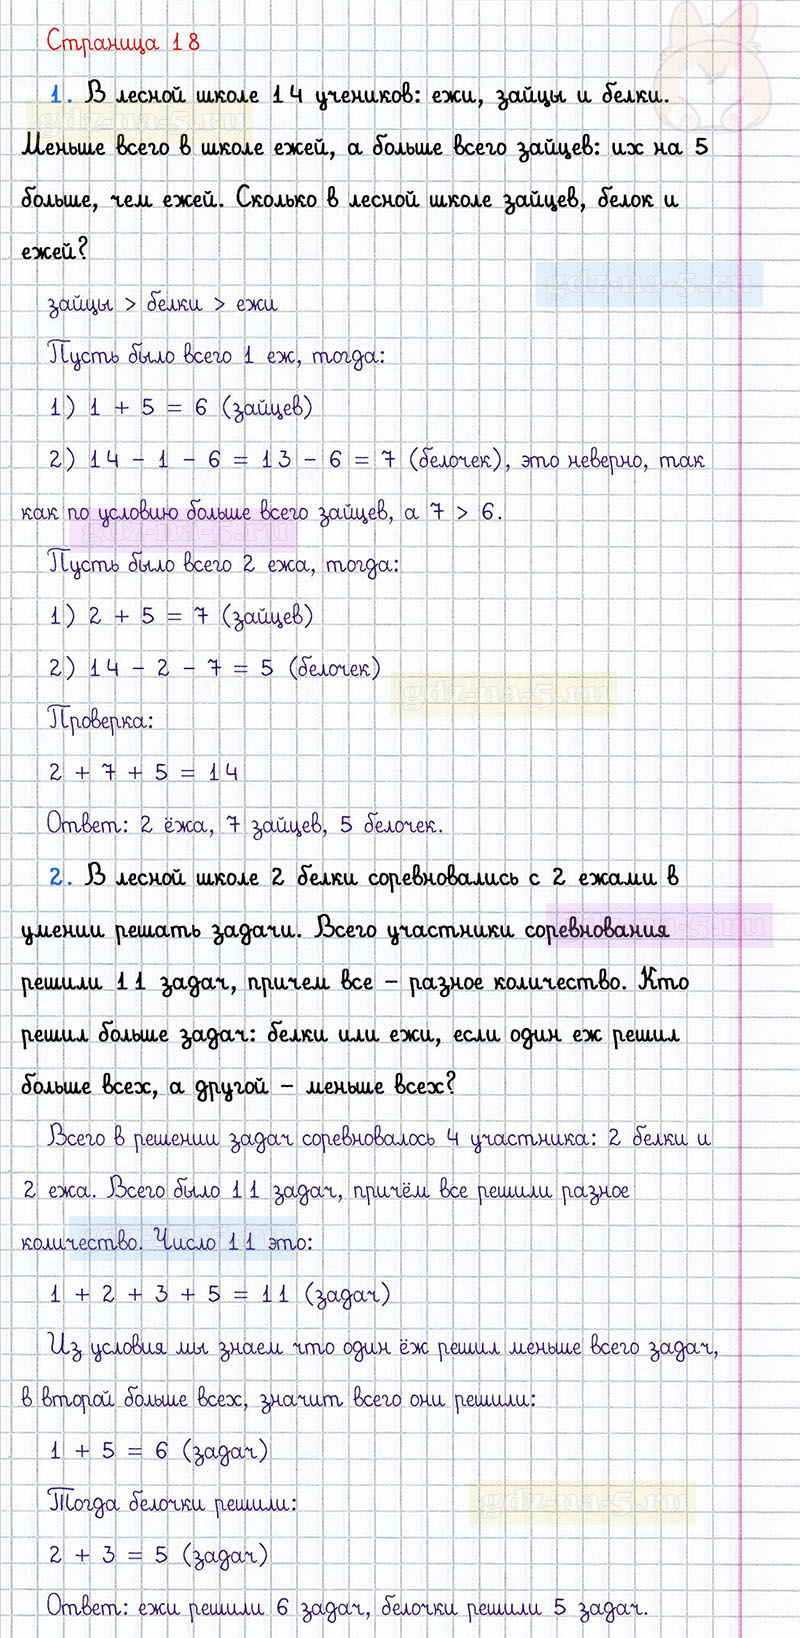 Страница 18
1. В лесной школе 14 учеников: ежи, зайцы и белки.
gdz-na-5.ru
Меньше всего в школе ежей, а больше всего зайцев: их на 5
больше, чем ежей. Сколько в лесной школе зайцев, белок и
ежей?
gdz-na-5.ru
зайцы > белки > ежи
Пусть было всего 1 еж, тогда:
1) 1 + 5 = 6 (зайцев)
2) 14 - 1 - 6 = 13 - 6 = 7 (белочек), это неверно, так
как по условию больше всего зайцев, а 7 > 6.
gdz-na-5.ru
Пусть было всего 2 ежа, тогда:
1) 2 + 5 = 7 (зайцев)
2) 14 - 2 - 7 = 5 (белочек)
gdz-na-5.ru
Проверка:
2 + 7 + 5 = 14
Ответ: 2 ёжа, 7 зайцев, 5 белочек.
2. В лесной школе 2 белки соревновались с 2 ежами в
умении решать задачи. Всего участники соревнования
gdz-na-5.ru
решили 11 задач, причем все – разное количество. Кто
решил больше задач: белки или ежи, если один еж решил
больше всех, а другой – меньше всех?
Всего в решении задач соревновалось 4 участника: 2 белки и
2 ежа. Всего было 11 задач, причём все решили разное
количество. Число 11 это:
1 + 2 + 3 + 5 = 11 (задач)
Из условия мы знаем что один ёж решил меньше всего задач,
в второй больше всех, значит всего они решили:
1 + 5 = 6 (задач)
Тогда белочки решили:
gdz-na-5.ru
2 + 3 = 5 (задач)
Ответ: ежи решили 6 задач, белочки решили 5 задач.